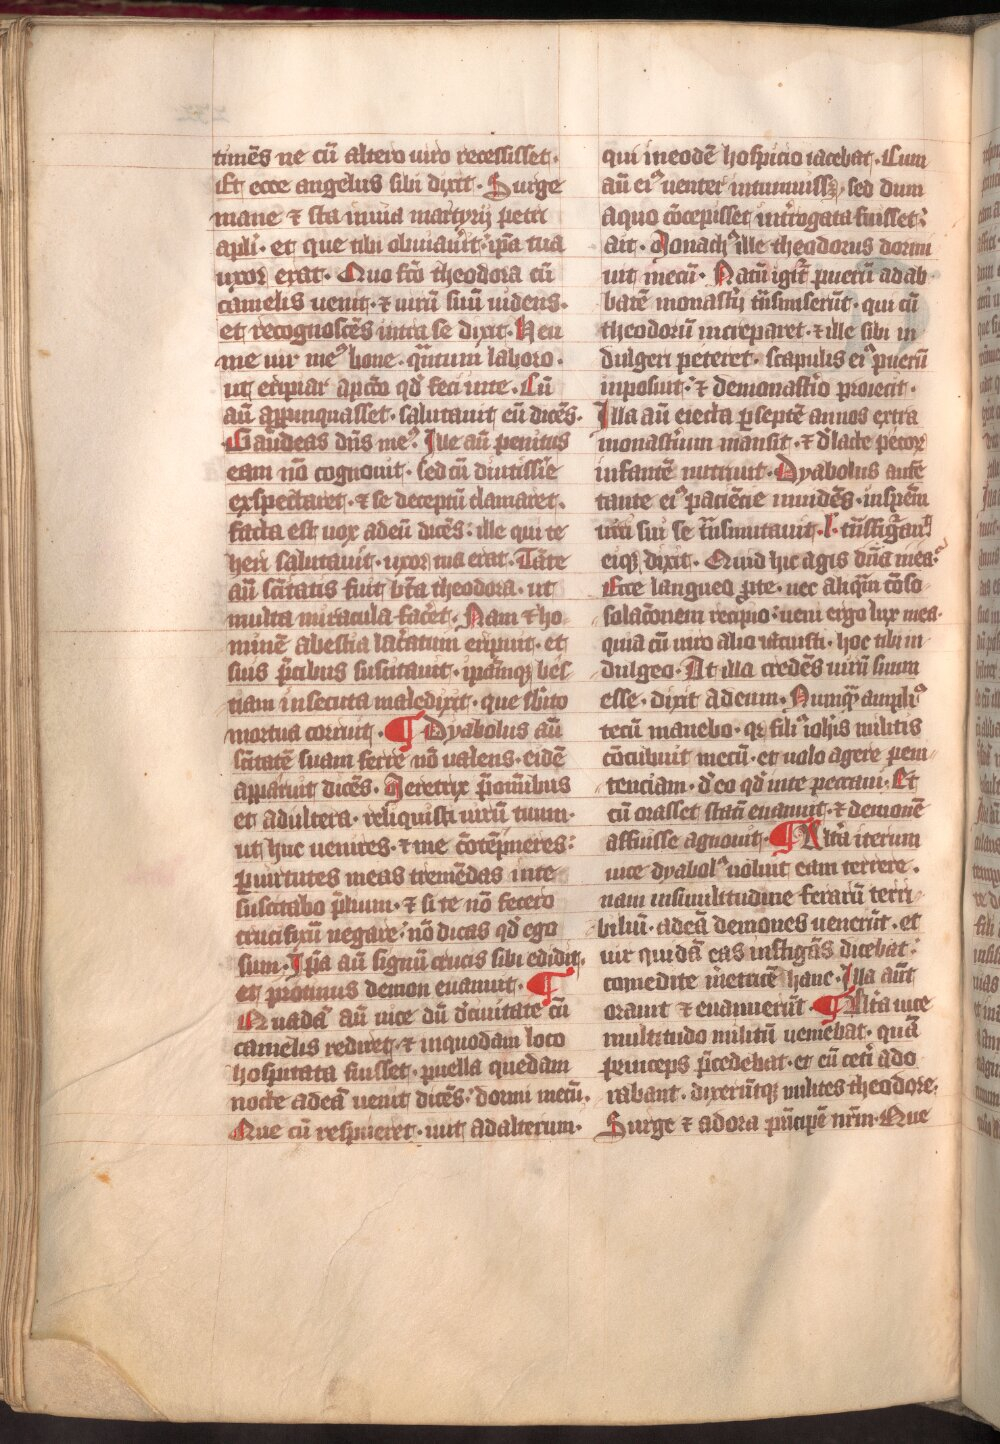 timēs ne cū altero uiro recessisset·
Et ecce angelus sibi dixit· Surge
mane ⁊ sta in uia martyrij petri
apli· et que tibi obuiauīt· ip̄a tua
uxor erat· Quo fcō theodora cū
camelis uenit· ⁊ uirū suū uidens·
et recognoscēs intra se dixit· Heu
me uir meꝰ bone· qn̄tum laboro·
ut eripiar a pcc̄o qd̄ feci in te· Cū
aū appinquasset· salutauit eū dicēs·
Gaudeas dn̄s meꝰ· Ille aū penitus
eam nō cognouit· sed cū diutissīe
exspectaret· ⁊ se deceptū clamaret·
facta est uox ad eū dicēs: ille qui te
heri salutauit· uxor tua erat· Tāte
aū scītatis fuit bt̄a theodora· ut
multa miracula facēt· Nam ⁊ ho
minē a bestia lac̄atum eripuit· et
suis p̄cibus suscitauit· ip̄amqꝫ bes
tiam insecuta maledixit· que sb̄ito
mortua corruit· ¶ Dyabolus aū
scītatē suam ferre nō ualens· eidē
apparuit dicēs· Meretrix p̄ om̄ibus
et adultera· reliquisti uirū tuum·
ut huc uenires· ⁊ me cōtēpneres:
ꝑ uirtutes meas tremēdas in te
suscitabo p̄lium· ⁊ si te nō fecero
crucifixū negare· nō dicas qd̄ ego
sum· Ip̄a aū signū crucis sibi edidit·
et protinus demon euanuit· ¶
Quadā aū uice dū d̄ ciuitate cū
camelis rediret· ⁊ in quodam loco
hospitata fuisset· puella quedam
nocte ad eā uenit dicēs: dormi mecū·
Que cū respueret· iuit ad alterum·
qui in eodē hospicio iacebat· Cum
aū eiꝰ uenter intumuissꝫ· sed dum
a quo cōcepisset int̄rogata fuisset:
ait· Monachꝰ ille theodorus dormi
uit mecū· Natū igit̄ puerū ad ab
batē monast̄ij tn̄smiserūt· qui cū
theodorū increparet· ⁊ ille sibi in
dulgeri peteret· scapulis eiꝰ puerū
inposuit: ⁊ de monast̄io proiecit·
Illa aū eiecta ꝑ septē annos extra
monast̄ium mansit· ⁊ d̄ lacte pecoꝝ
infantē nutriuit· Dyabolus aūt
tante eiꝰ paciēcie inuidēs· in spēm
uiri sui se tn̄smutauit· l· tn̄sfiḡans
eiqꝫ dixit· Quid hic agis dn̄a mea:
Ecce langueo ꝓ te· nec aliqm̄ cōso
solacōnem recipio: ueni ergo lux mea·
quia cū uiro alio iacuisti· hoc tibi in
dulgeo· At illa credēs uirū suum
esse· dixit ad eum· Numqͣ ampliꝰ
tecū manebo· qꝛ filiꝰ ioh̄is militis
cōcubuit mecū· et uolo agere peni
tenciam· d̄ eo qd̄ in te peccaui· Et
cū orasset statī euanuit· ⁊ demonē
affuisse agnouit· ¶ Alt̄a iterum
uice dyabolꝰ uoluit eam terrere·
nam in similitudine ferarū terri
biliū· ad eā demones uenerūt· et
uir quidā eas instigās dicebat:
comedite meretricē hanc· Illa aūt
orauit ⁊ euanuerūt· ¶ Alt̄a uice
multitudo militū ueniebat· quā
princeps p̄cedebat· et eū cet̄i ado
rabant· dixerūtqꝫ milites theodore·
Surge ⁊ adora pn̄cipē nr̄m· Que